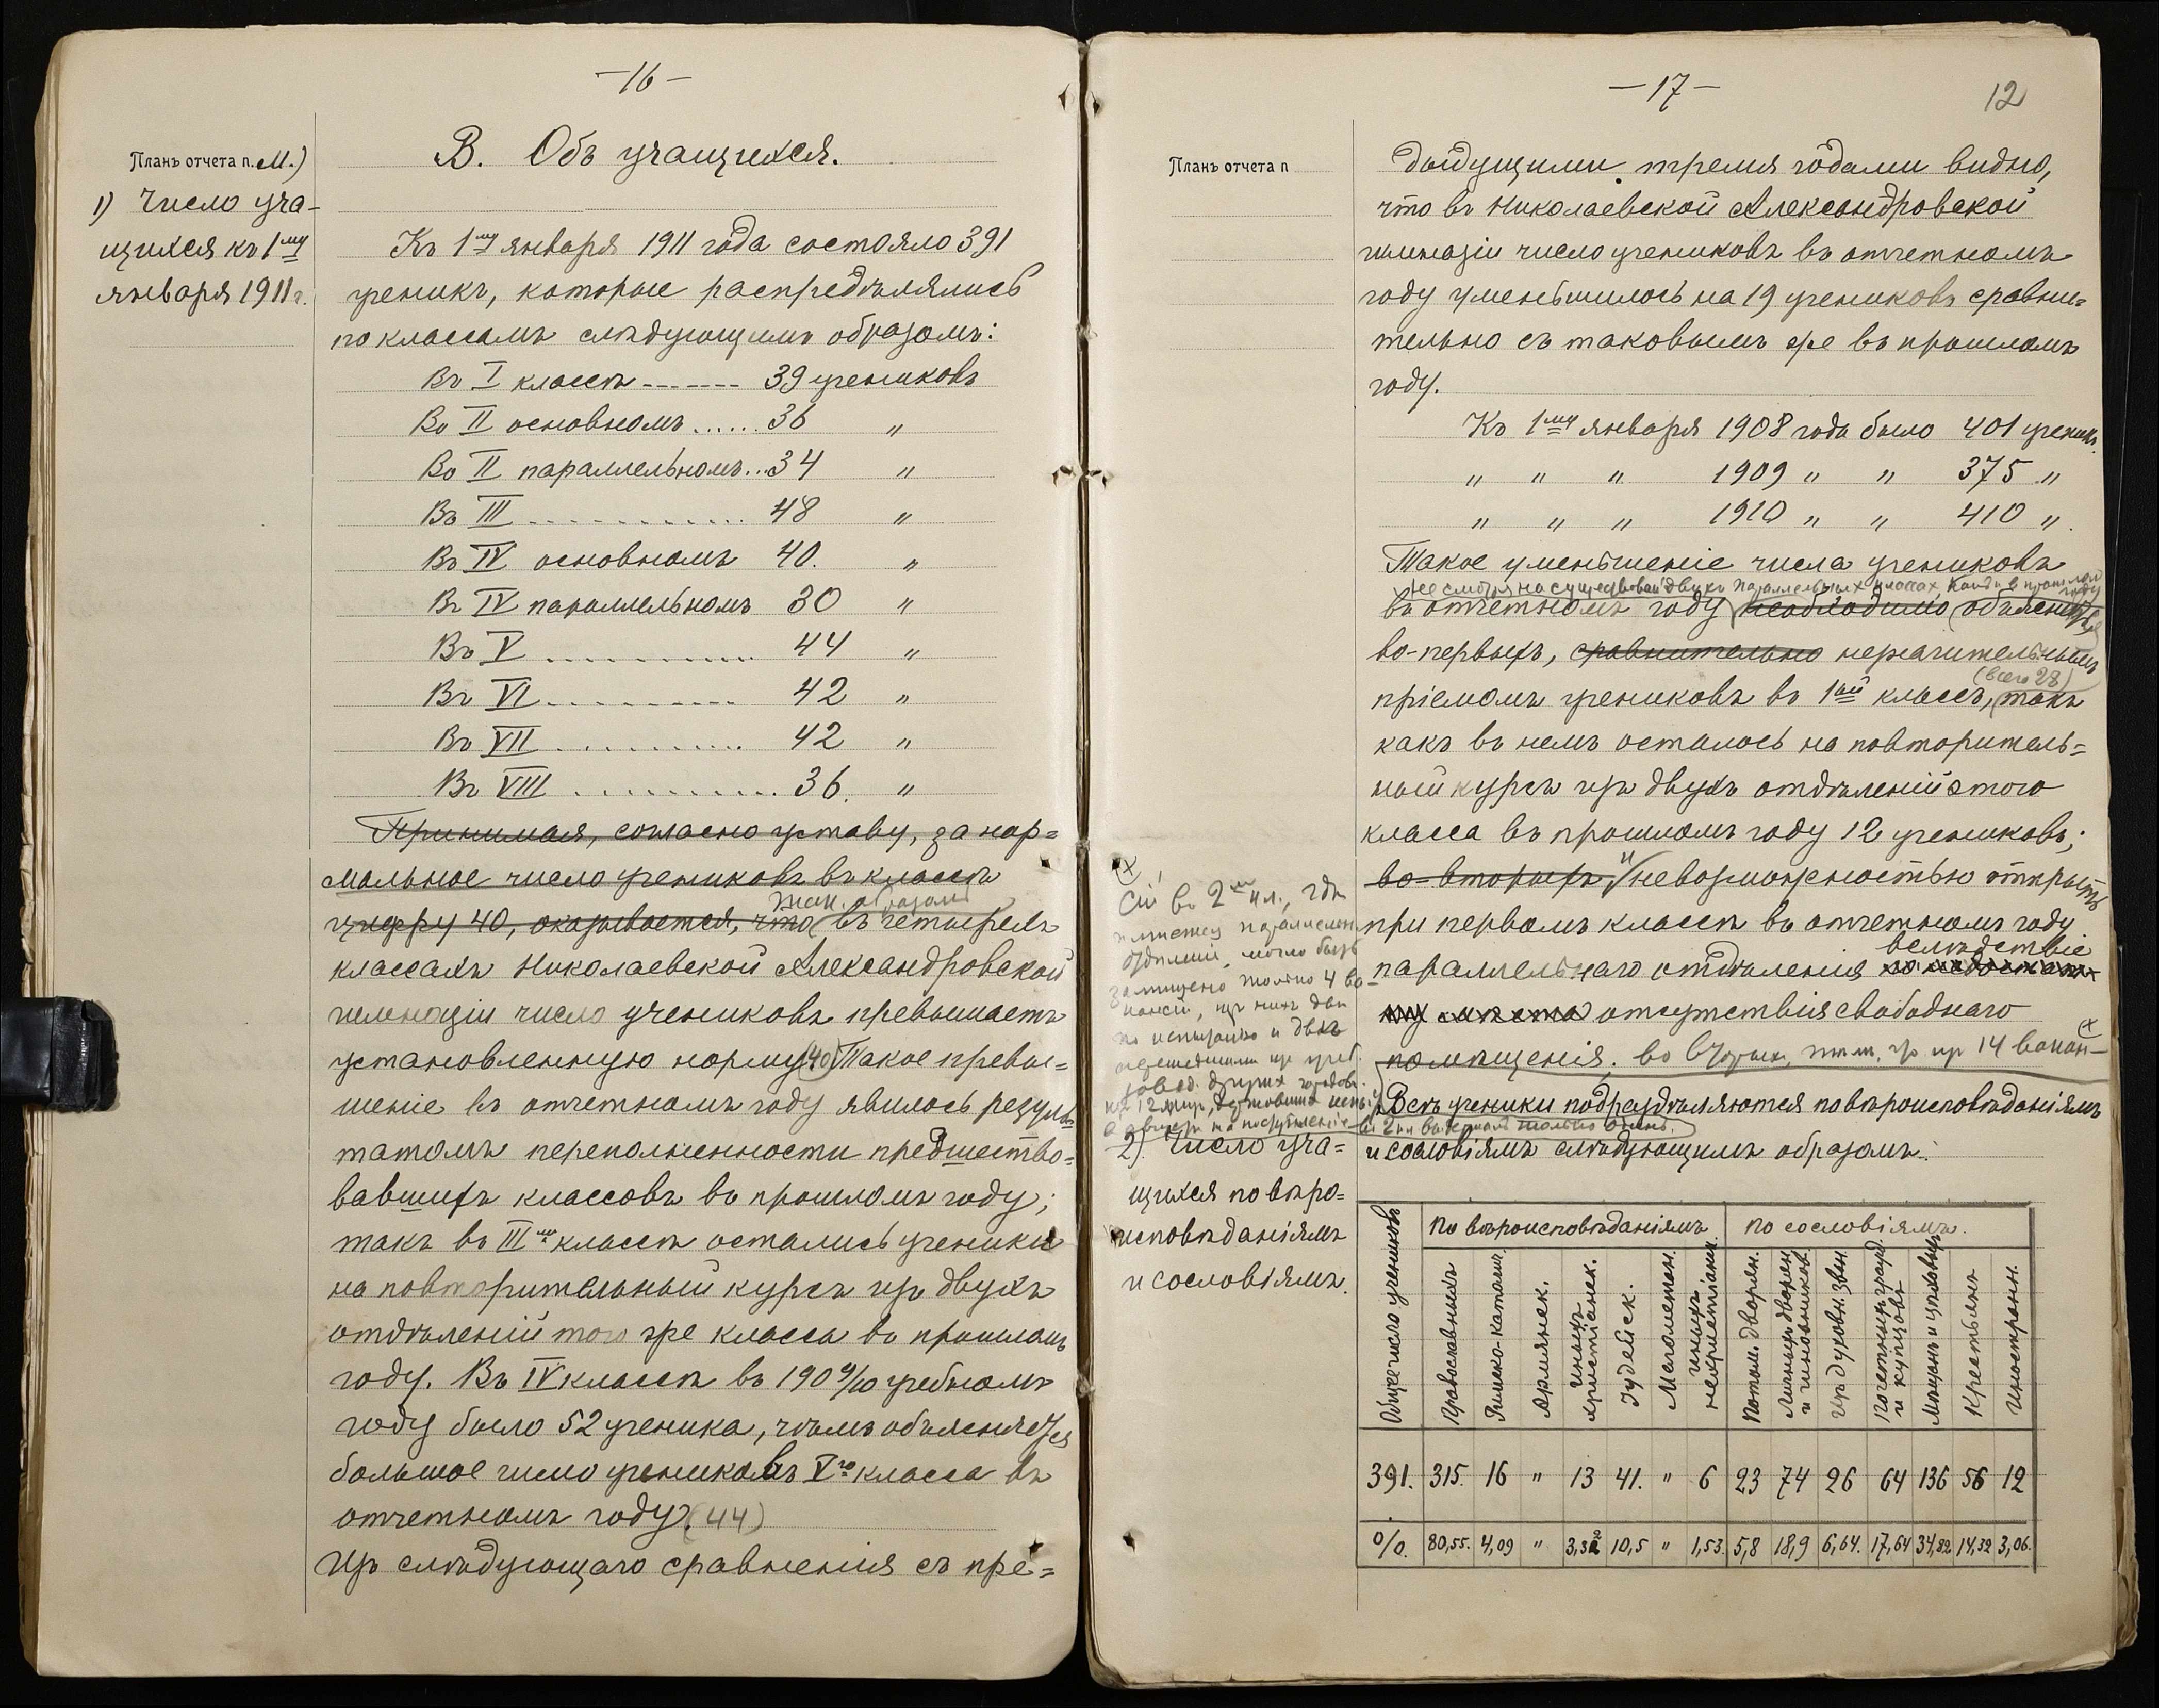 —16—
В. Объ учащихся.
Планъ отчета п. М.)
1) Число уча-
щихся къ 1му
января 1911 г.
Къ 1му января 1911 года состояло 391
ученикъ, которые распредѣлялись
по классамъ слѣдующимъ образомъ:
Въ I классѣ ------- 39 учениковъ
Во II основномъ ...... 36 "
Во II параллельномъ... 34 "
Въ III ............ 48 "
Въ IV основномъ 40. "
Въ IV параллельномъ 30 "
Въ V ............ 44 "
Въ VI ............ 42 "
Въ VII ............ 42 "
Въ VIII ............ 36. "
Принимая, согласно уставу, за нор=
мальное число учениковъ въ классѣ
Так. образомъ
цифру 40, оказывается, что въ четырехъ
классахъ Николаевской Александровской
гимназіи число учениковъ превышаетъ
установленную норму (40) Такое превы=
шеніе въ отчетномъ году явилось резуль-
татомъ переполненности предшество=
вавшихъ классовъ въ прошломъ году;
такъ въ IIIмъ классѣ остались ученики
на повторительный курсъ изъ двухъ
отдѣленій того же класса въ прошломъ
году. Въ IV классѣ въ 1909/10 учебномъ
году было 52 ученика, чѣмъ объясняется
большое число учениковъ Vго класса въ
отчетномъ году. (44)
Изъ слѣдующаго сравненія съ пре=
—17—
12
Планъ отчета п
дыдущими тремя годами видно,
что въ Николаевской Александровской
гимназіи число учениковъ въ отчетномъ
году уменьшилось на 19 учениковъ сравни=
тельно съ таковымъ же въ прошломъ
году.
Къ 1му января 1908 года было 401 ученик.
" " " 1909 " " 375 "
" " " 1910 " " 410 "
Такое уменьшеніе числа учениковъ
не смотря на существован. двухъ параллельныхъ классах, какъ и в прошлом году
въ отчетномъ году необходимо объясняется
во-первыхъ, сравнительно незначительнымъ
(всего 28)
пріемомъ учениковъ въ 1ый классъ, такъ
какъ въ немъ осталось на повторитель=
ный курсъ изъ двухъ отдѣленій этого
класса въ прошломъ году 12 учениковъ;
во-вторыхъ, и невозможностью открыть
при первомъ классѣ въ отчетномъ году
вслѣдствіе
параллельнаго отдѣленія по недостат-
ку мѣста отсутствія свободнаго
помѣщенія. во вторыхъ, тѣм, что из 14 вакан-
х
сій во 2м кл., гдѣ
имѣется параллельн.
отдѣленіе, могло быть
замѣщено только 4 ва-
кансіи, изъ нихъ двѣ
по испытанію и двѣ
перешедшими из учеб.
завед. других городовъ.
Всѣ ученики подраздѣляются по вѣроисповѣданіямъ
и сословіямъ слѣдующимъ образомъ:
2) Число уча=
щихся по вѣро=
исповѣданіямъ
и сословіямъ.
Общее число учениковъ
По вѣроисповѣданіямъ По сословіямъ.
Православныхъ Римско-католич. Армянск. Иныхъ христіанск. Іудейск. Магометан. Иныхъ нехристіанск. Потом. дворян. Личныхъ дворян. и чиновников. Изъ духовн. зван. Почетныхъ гражд. и купцовъ Мѣщанъ и цеховыхъ Крестьянъ Иностранн.
391. 315. 16 " 13 41. " 6 23 74 26 64 136 56 12
%. 80,55. 4,09 " 3,32 10,5 " 1,53. 5,8 18,9 6,64. 17,64 34,82 14,32 3,06.